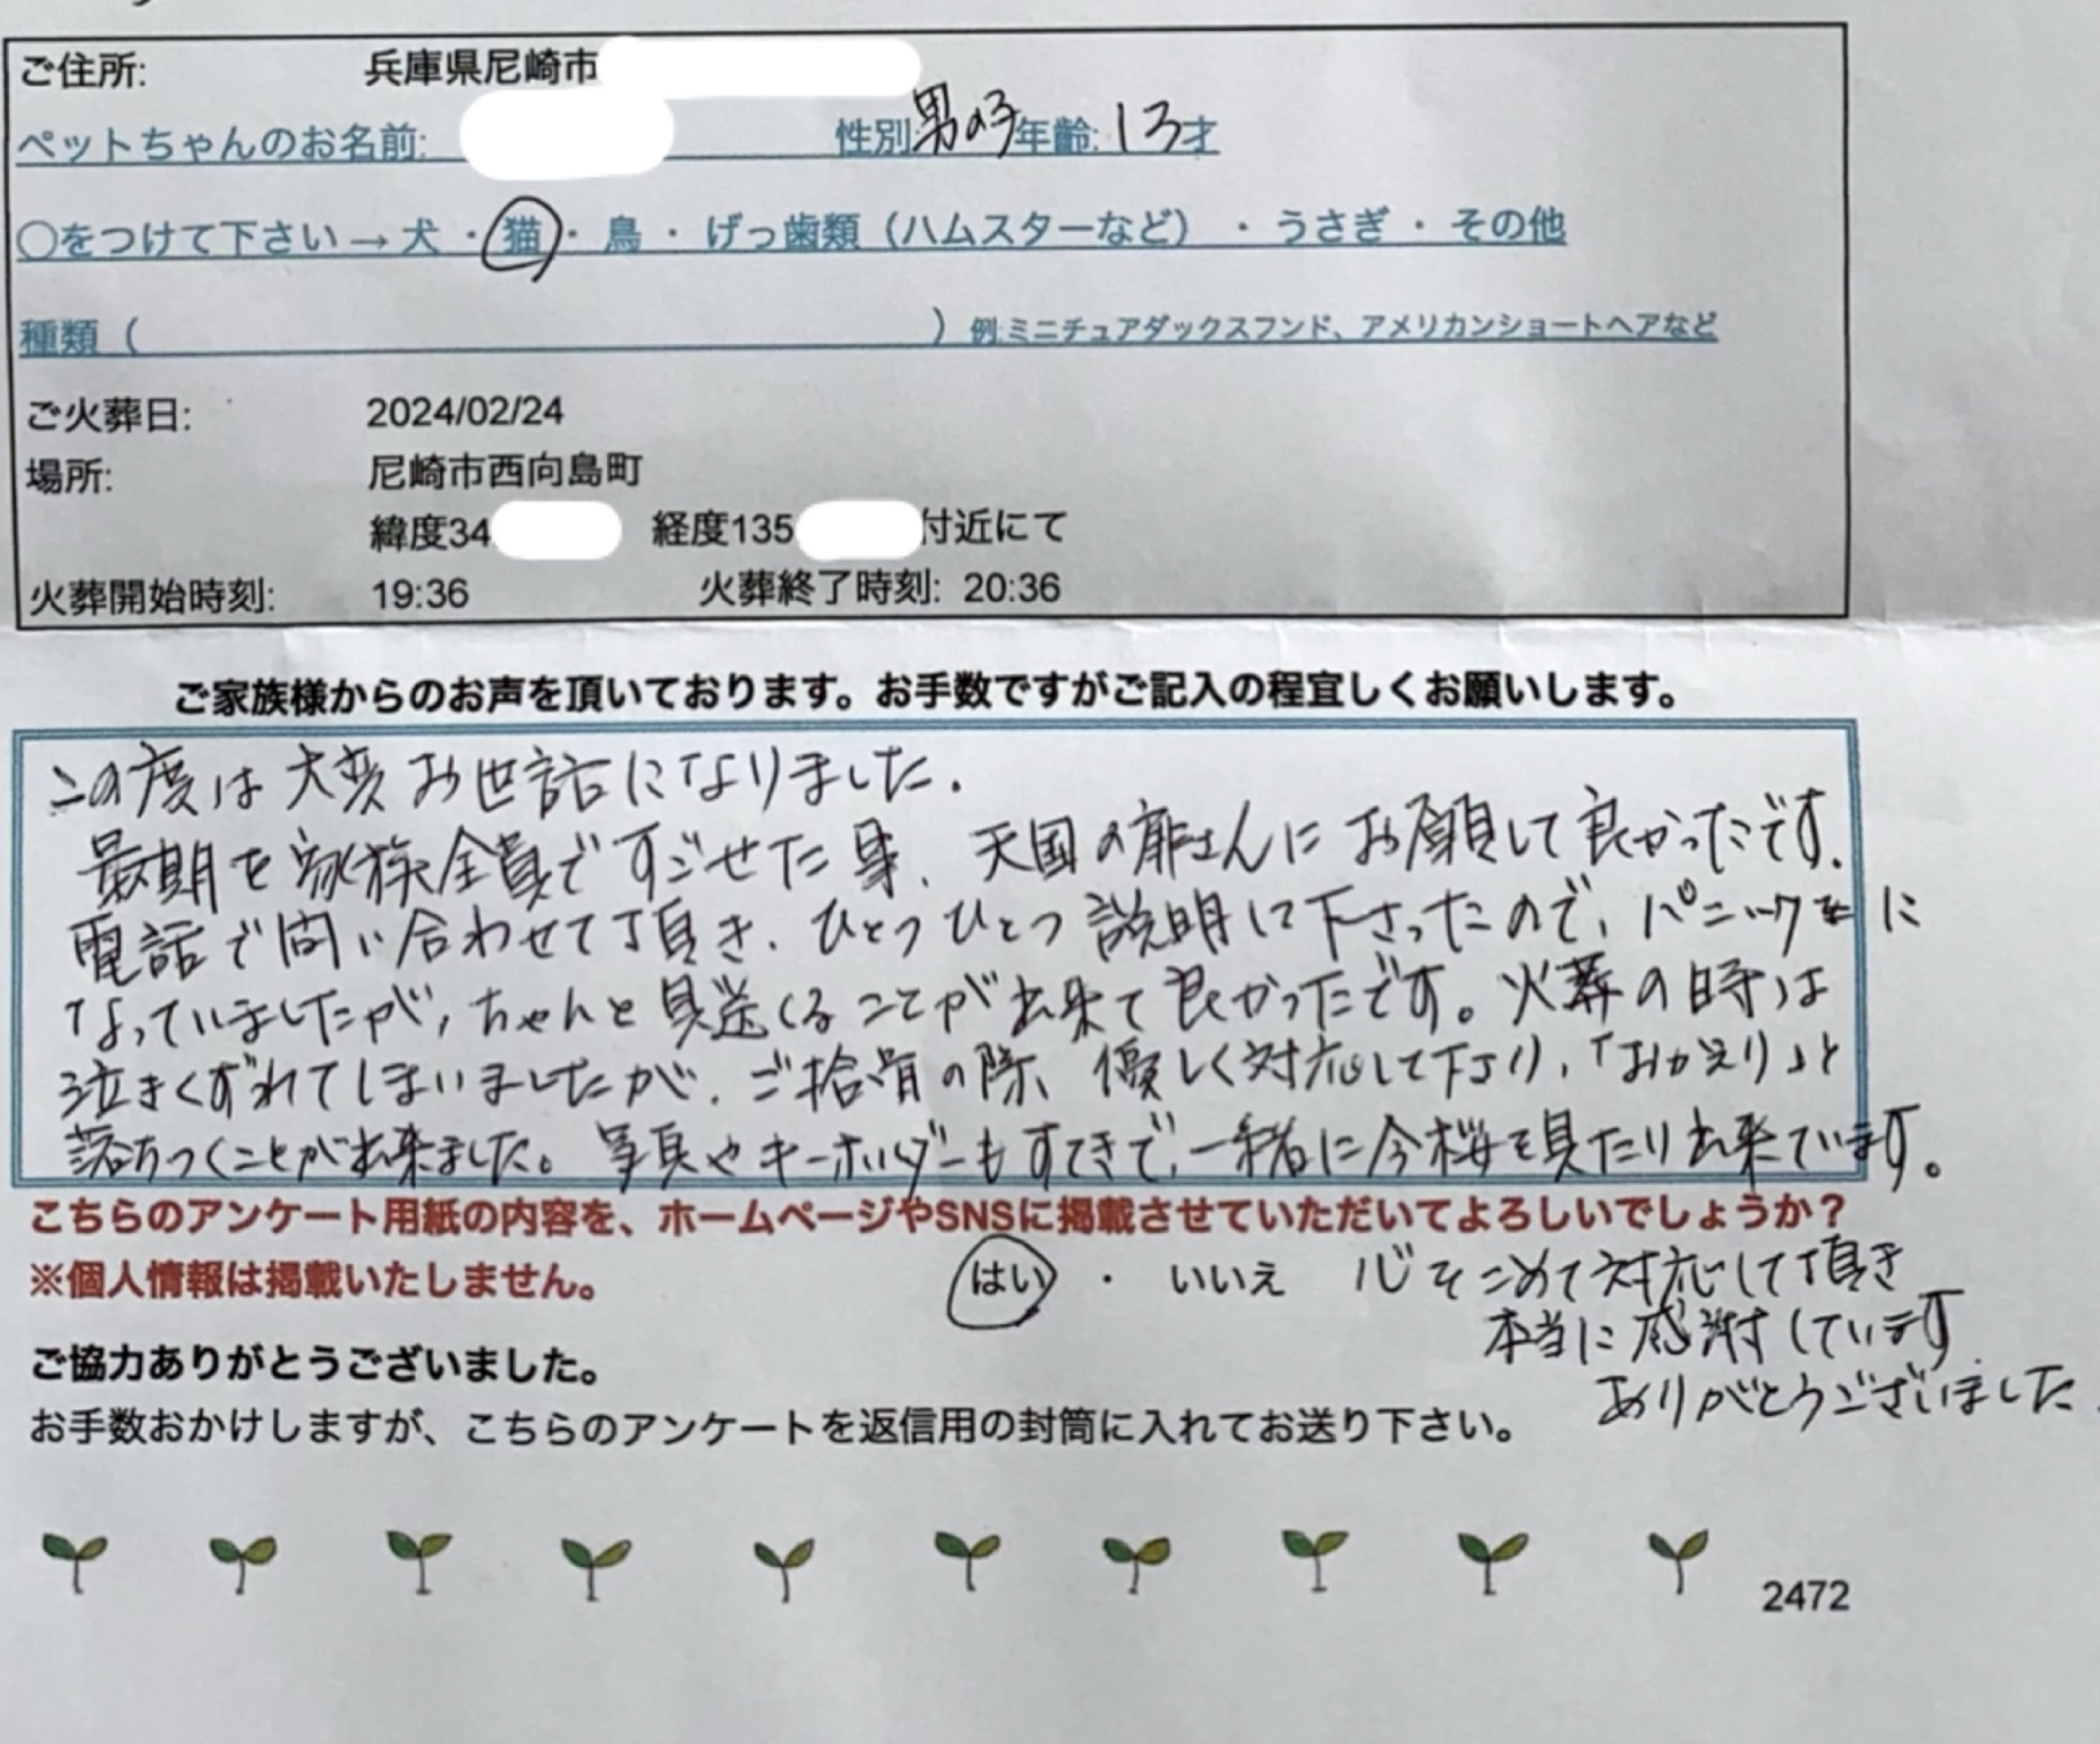 ご住所: 兵庫県尼崎市
ペットちゃんのお名前: 性別:男の子年齢:13才
○をつけて下さい→犬・猫・鳥・げっ歯類(ハムスターなど)・うさぎ・その他
種類( )例:ミニチュアダックスフンド、アメリカンショートヘアなど
ご火葬日: 2024/02/24
場所: 尼崎市西向島町
緯度34 経度135 付近にて
火葬開始時刻: 19:36 火葬終了時刻: 20:36
ご家族様からのお声を頂いております。お手数ですがご記入の程宜しくお願いします。
この度は大変お世話になりました.
最期を家族全員ですごせた事、天国の扉さんにお願して良かったです.
電話で問い合わせて頂き、ひとつひとつ説明して下さったので、パニックに
なっていましたが、ちゃんと見送くることが出来て良かったです。火葬の時は
泣きくずれてしまいましたが、ご拾骨の際、優しく対応して下さり、「おかえり」と
落ちつくことが出来ました。写真やキーホルダーもすてきで、一緒に今桜を見たり出来ています。
こちらのアンケート用紙の内容を、ホームページやSNSに掲載させていただいてよろしいでしょうか?
※個人情報は掲載いたしません。 はい ・ いいえ 心をこめて対応して頂き
本当に感謝しています.
ご協力ありがとうございました。
ありがとうございました.
お手数おかけしますが、こちらのアンケートを返信用の封筒に入れてお送り下さい。
2472